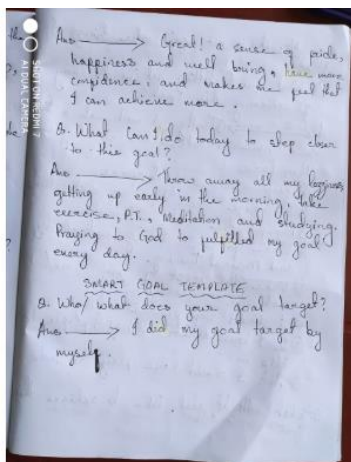 the
SHOT ON REDMI 7
AI DUAL CAMERA
Ans → Great! a sense of pride,
happiness and well being, have more
confidence, and makes me feel that
I can achieve more.
Q. What Can I do today to step closer
to this goal?
Ans → Throw away all my laziness,
getting up early in the morning, take
exercise, P.T., Meditation and studying.
Praying to God to fulfilled my goal
every day.
SMART GOAL TEMPLATE
Q. Who/ what does your goal target?
Ans → I did my goal target by
myself.